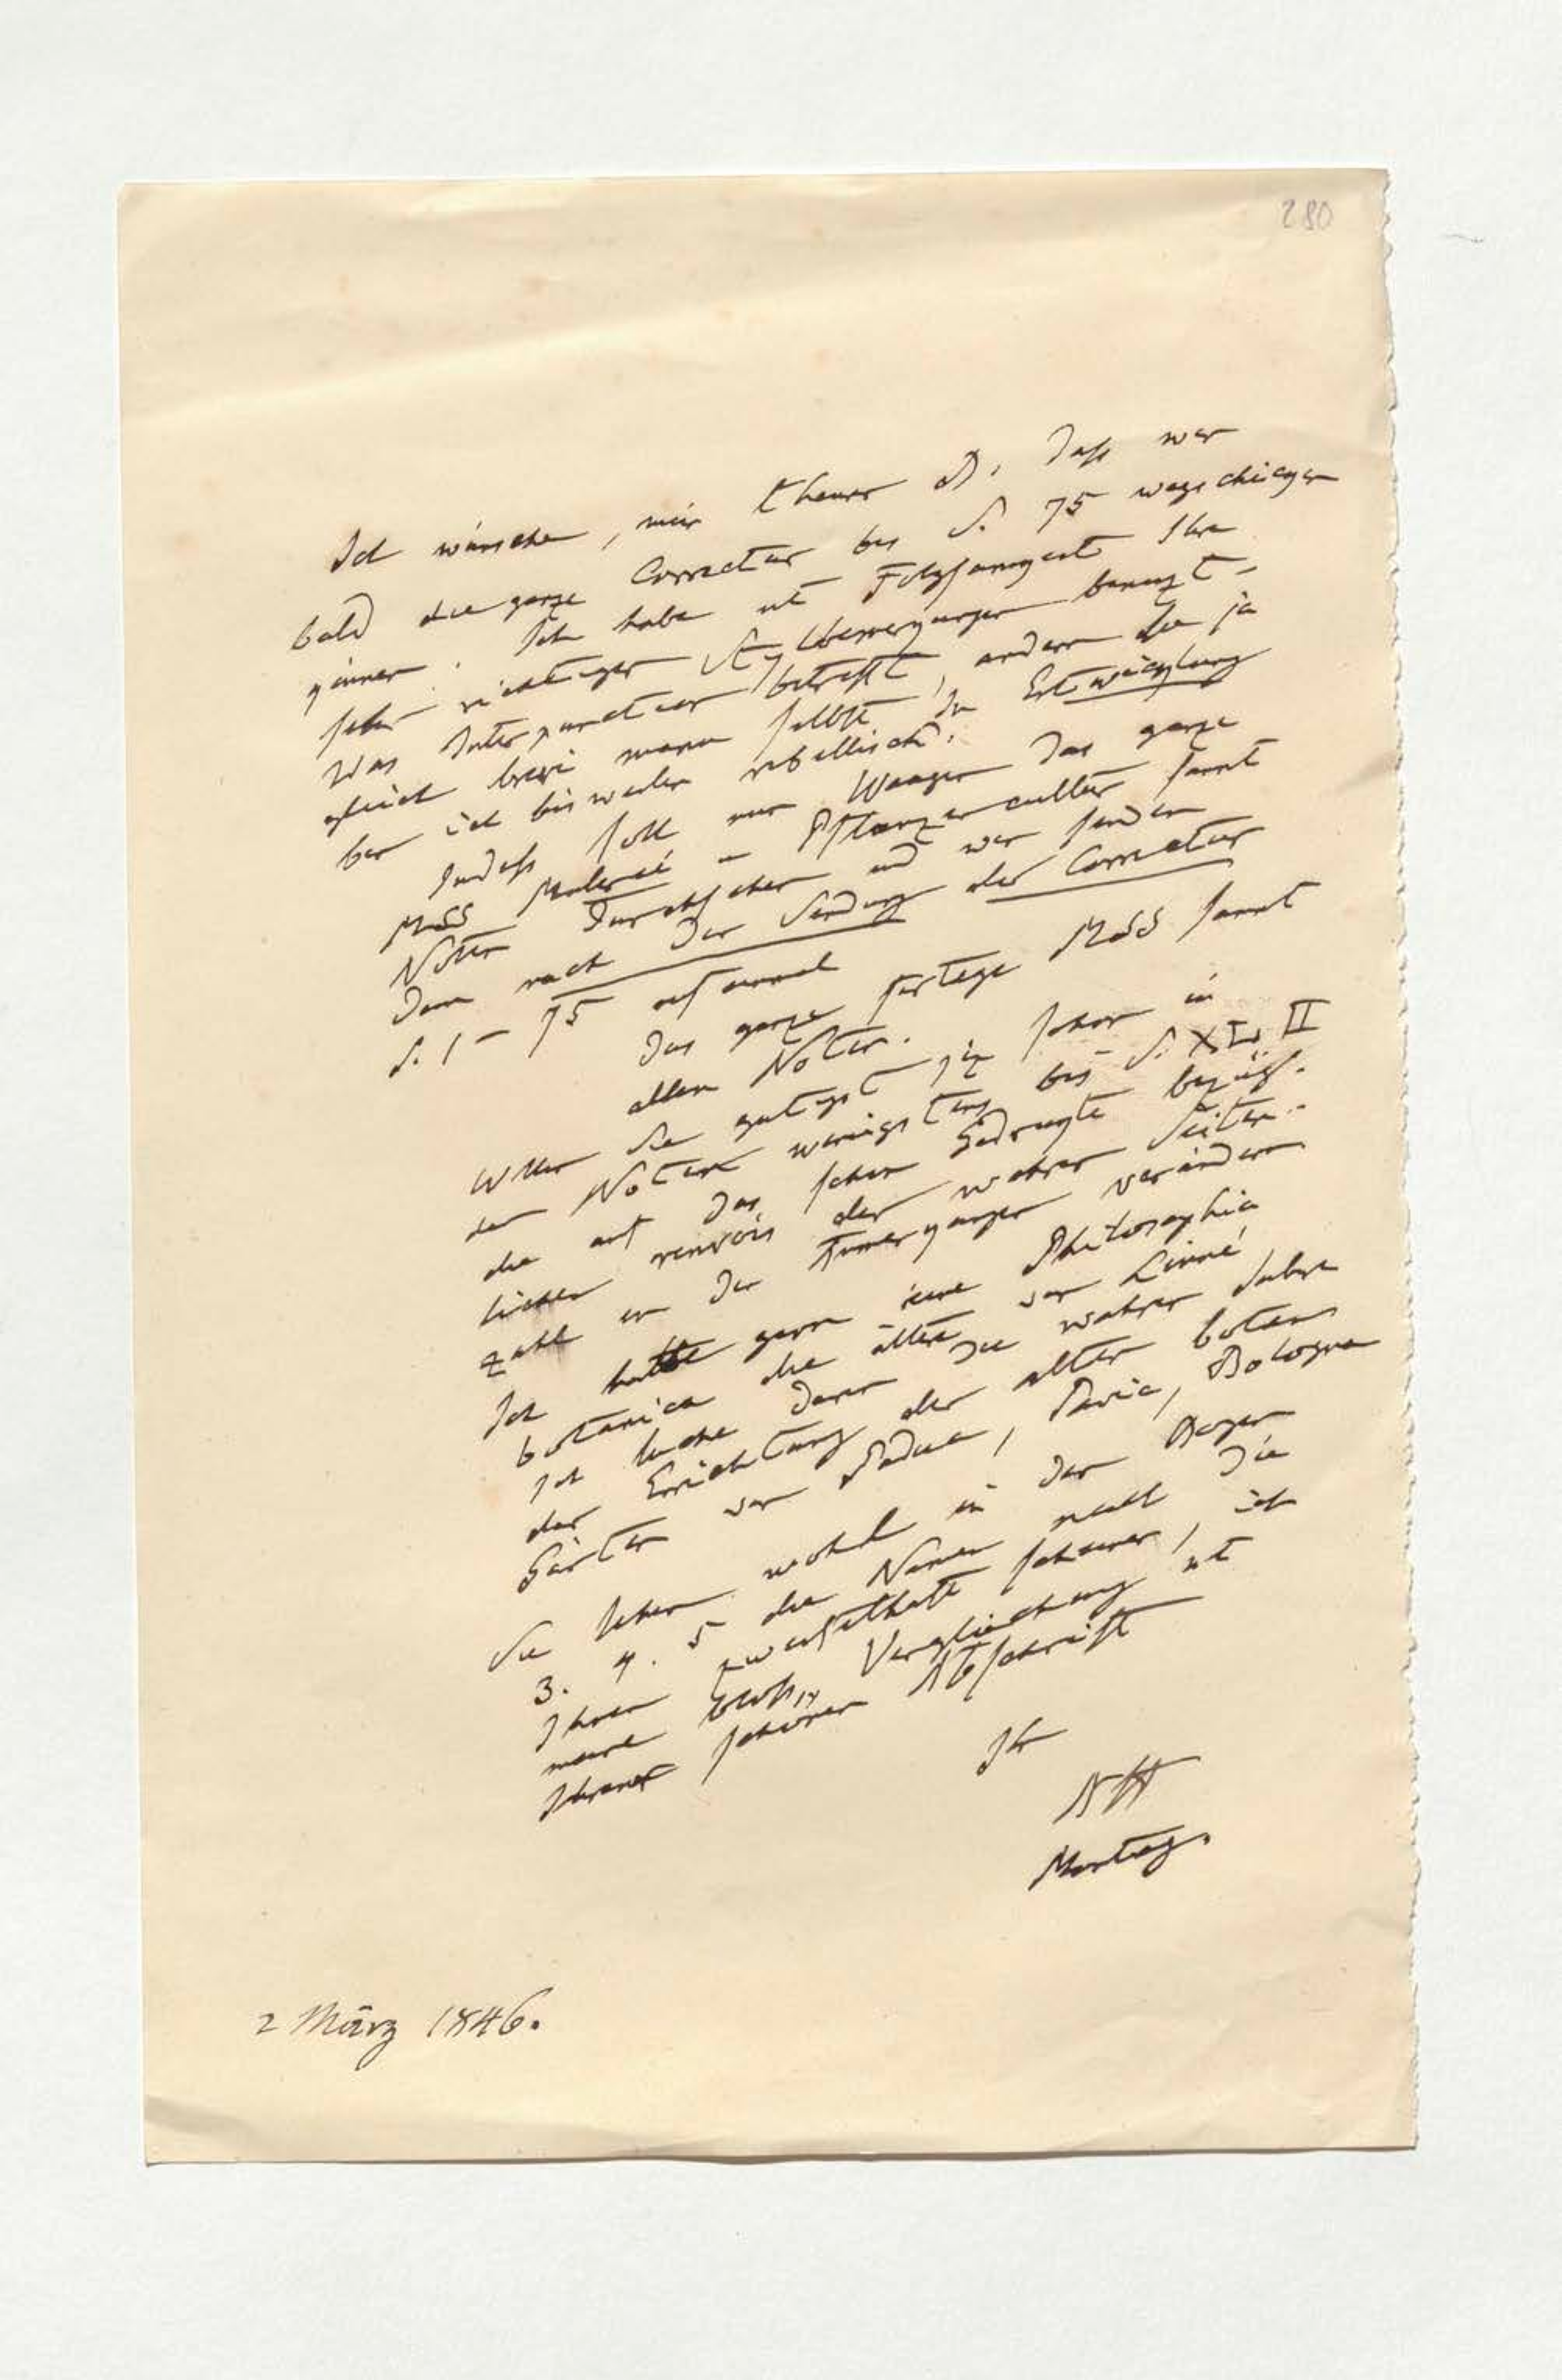 280
Ich wünsche, mein theurer B, daß wir
bald die ganze Correctur bis S. 75 wegschicken
können. Ich habe mit Folgsamkeit Ihre
sehr richtigen Stylbemerkungen benuzt,
was Interpunction betrifft, andern Sie ja
gleich brevi manu selbst. In Entwicklung
bin ich bisweilen rebellisch.
Indeß soll nun Waagen das ganze
MSS Malerei – Pflanzencultur samt
Noten durchsehen und wir senden
dann nach der Sendung der Correctur
S. 1 – 75 auf einmal
das ganze fertige MSS samt
allen Noten.
Wollen Sie gütigst jezt schon in
den Noten wenigstens bis S. XLII
die auf das schon Gedruckte bezüg-
lichen renvois der wahren Seiten-
zahl in den Anmerkungen verändern
Ich hätte gern eine Philosophia
botanica die ältere von Linné,
ich suche darin die wahren Jahre
der Errichtung der alten botan
Gärten von Padua, Pavia, Bologna
Sie sehen wohl in den Bogen
3. 4. 5 die Namen nach die
Ihnen zweifelhaft scheinen, ich
meine bloß Vergleichung mit
Ihrer schönen Abschrift
Ihr
AHt
Montag.
2 März 1846.